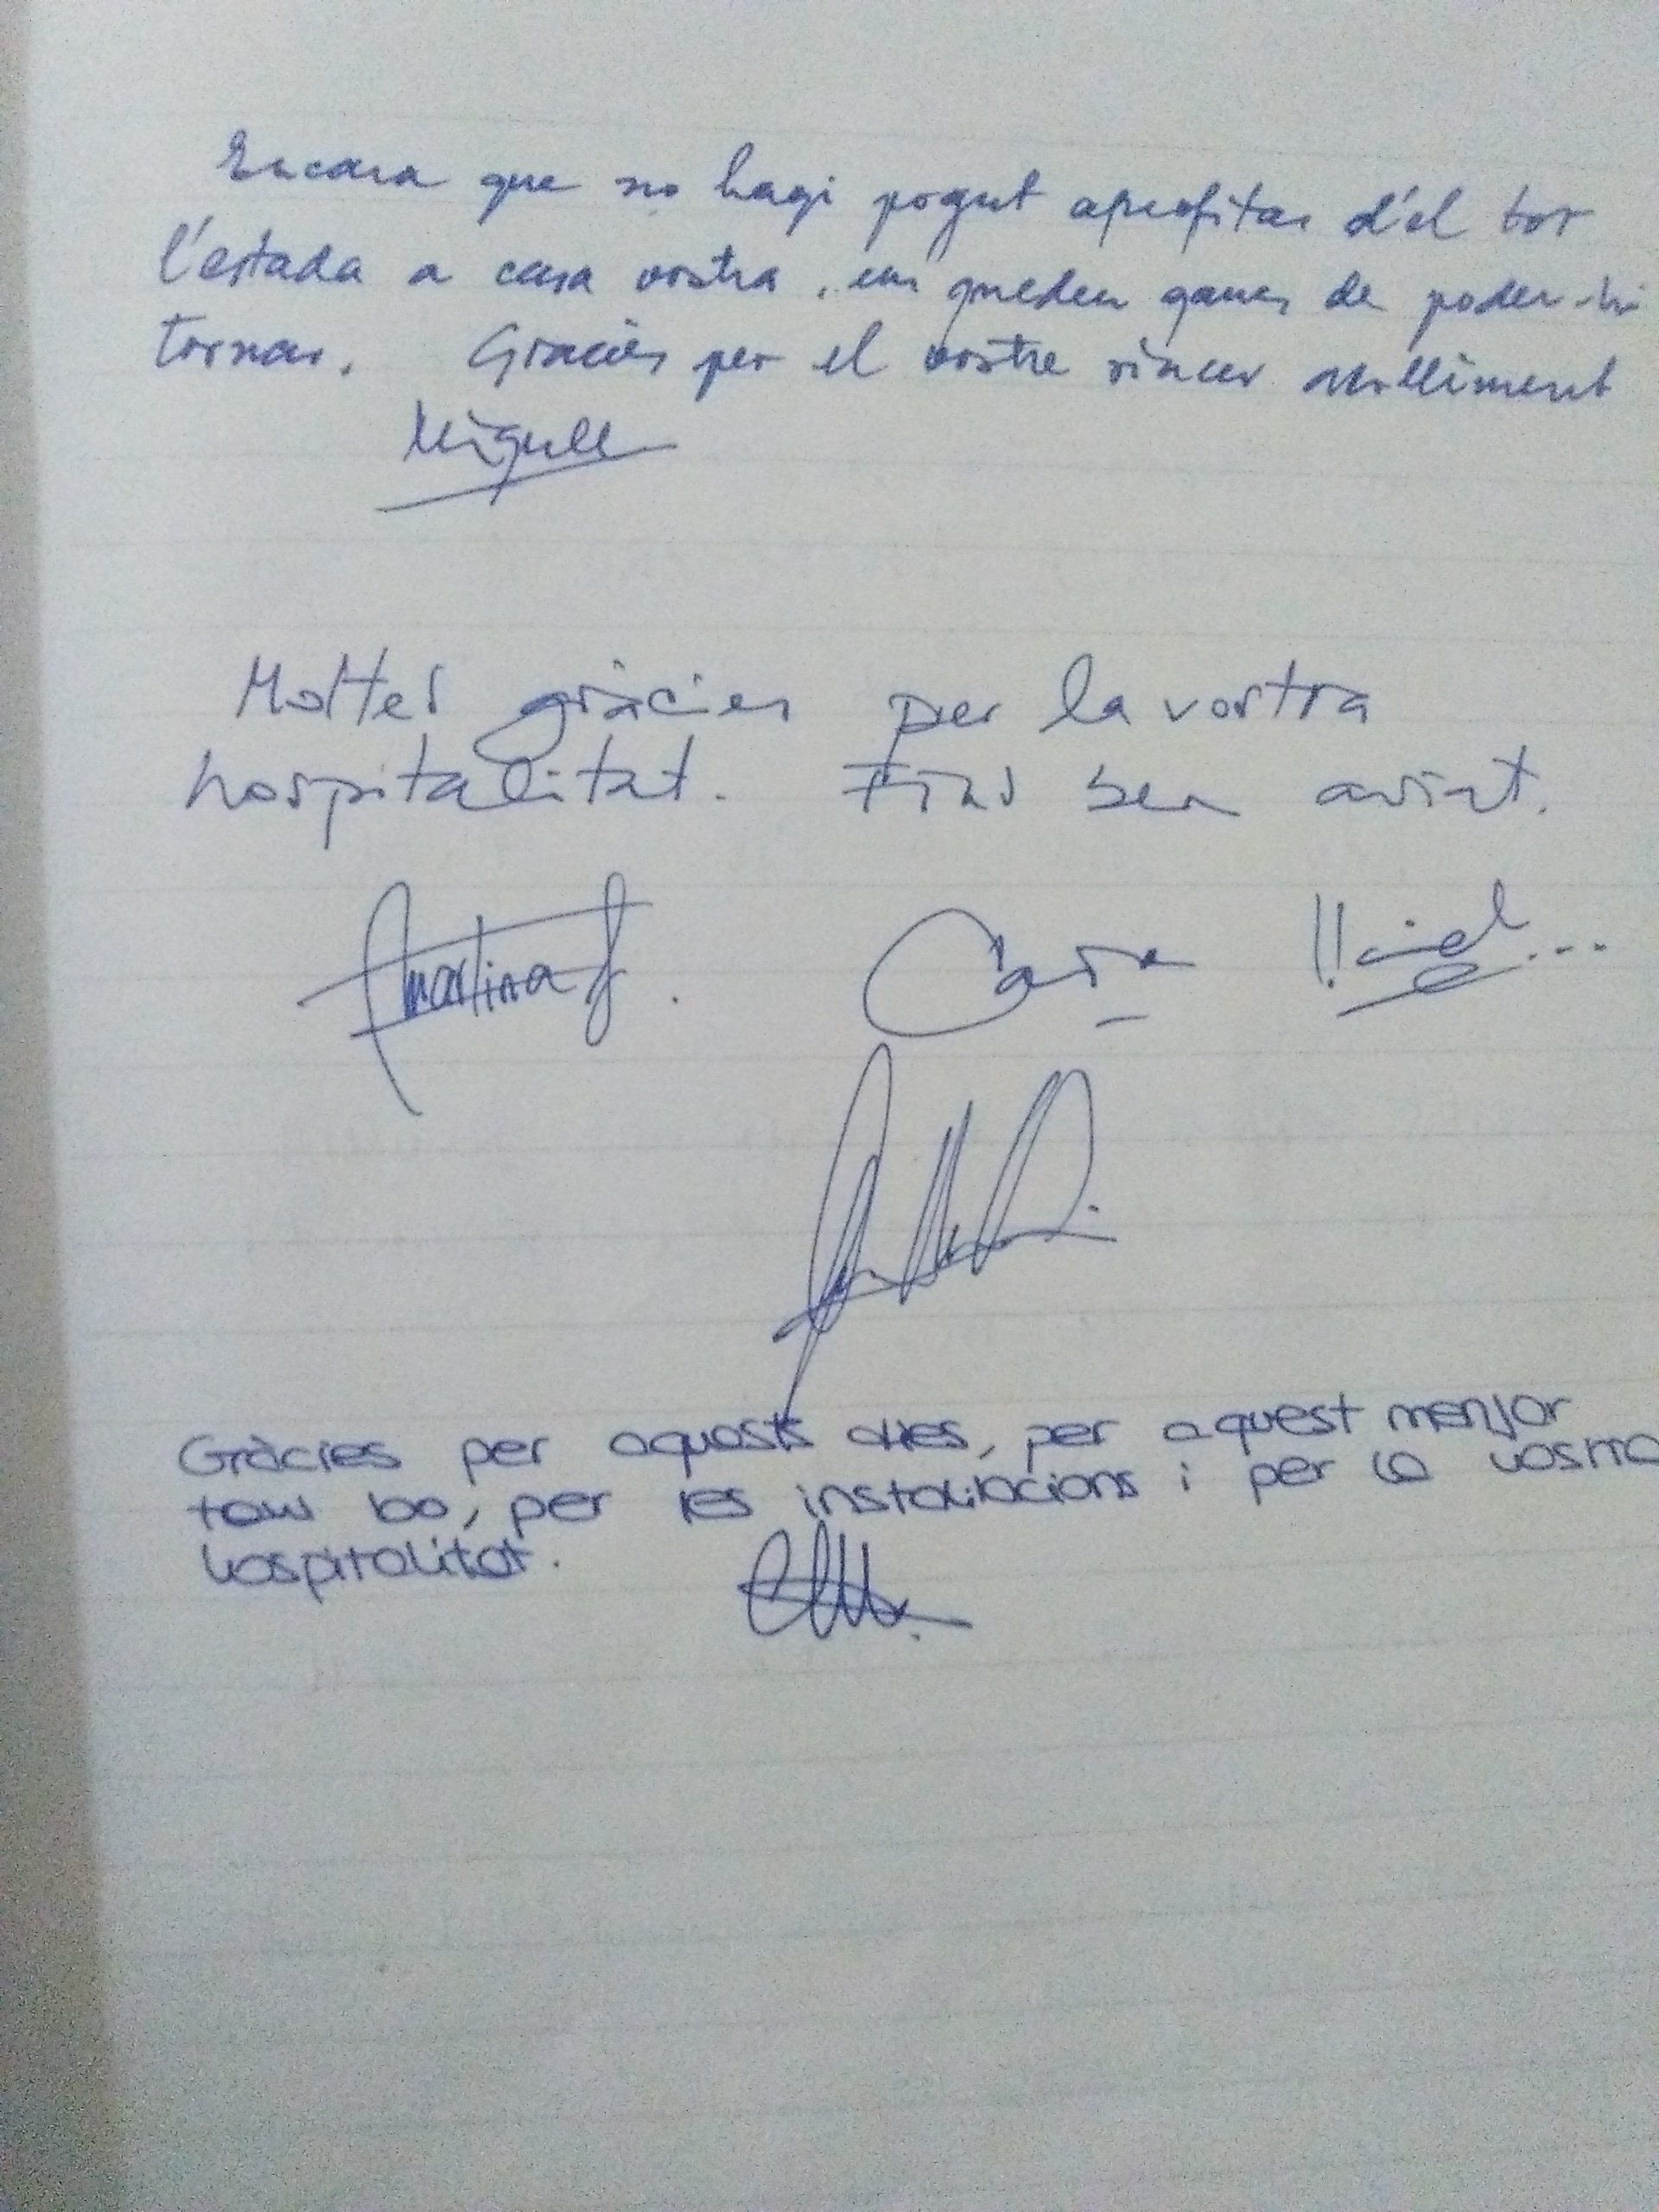 Encara que no hagi pogut aprofitar d'el tot
l'estada a casa vostra, em queden ganes de poder-hi
tornar. Gràcies per el vostre sincer acolliment
Miquel
Moltes gràcies per la vostra
hospitalitat. Fins ben aviat.
Martina
Gràcies per aquests dies, per aquest menjar
tan bo, per les instal·lacions i per la vostra
hospitalitat.